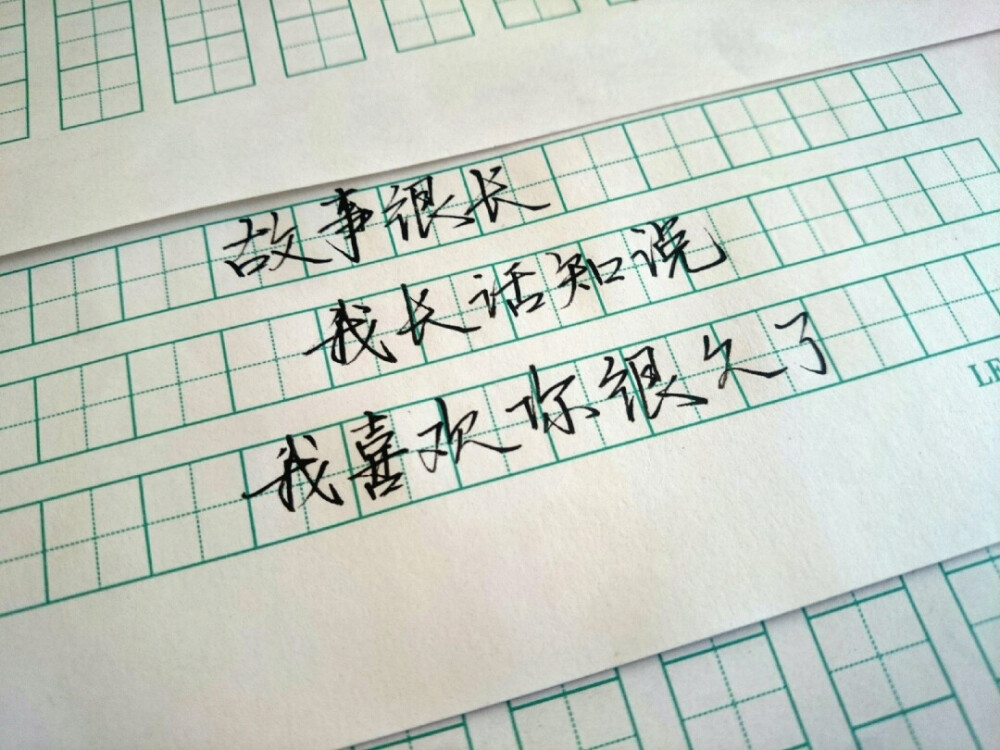 故事很长
我长话知说
我喜欢你很久了
LE